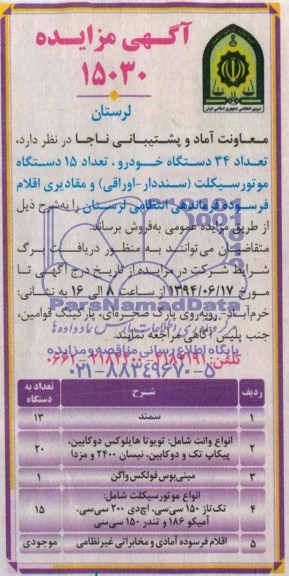 آگهی مزایده
۱۵۰۳۰
لرستان
معاونت آماد و پشتیبانی ناجا در نظر دارد،
تعداد ۳۴ دستگاه خودرو، تعداد ۱۵ دستگاه
موتورسیکلت (سنددار-اوراقی) و مقادیری اقلام
فرسوده فرماندهی انتظامی لرستان را به‌شرح ذیل
از طریق مزایده عمومی به‌فروش برساند.
متقاضیان می‌توانند به منظور دریافت برگ
شرایط شرکت در مزایده از تاریخ درج آگهی تا
مورخ ۱۳۹۴/۰۶/۱۷ از ساعت ۸ الی ۱۶ به نشانی:
خرم‌آباد-روبه‌روی پارک صخره‌ای، پارکینگ قوامین،
جنب پلیس آگاهی مراجعه نمایند.
ParsNamadData
پایگاه اطلاع رسانی مناقصه و مزایده
تلفن:
۰۲۱-۸۸۳۴۹۶۷۰-۵
ردیف شرح تعداد به دستگاه
۱ سمند ۱۳
۲ انواع وانت شامل: تویوتا هایلوکس دوکابین،
پیکاپ تک و دوکابین، نیسان ۲۴۰۰ و مزدا ۲۰
۳ مینی‌بوس فولکس‌واگن ۱
۴ انواع موتورسیکلت شامل:
تک‌تاز ۱۵۰ سی‌سی، اچ‌دی ۲۰۰ سی‌سی،
آمیکو ۱۸۶ و تندر ۱۵۰ سی‌سی ۱۵
۵ اقلام فرسوده آمادی و مخابراتی غیرنظامی موجودی